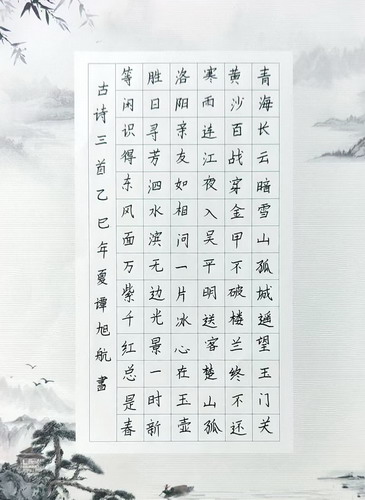 青海长云暗雪山孤城遥望玉门关
黄沙百战穿金甲不破楼兰终不还
寒雨连江夜入吴平明送客楚山孤
洛阳亲友如相问一片冰心在玉壶
胜日寻芳泗水滨无边光景一时新
等闲识得东风面万紫千红总是春
古诗三首乙巳年夏谭旭航书